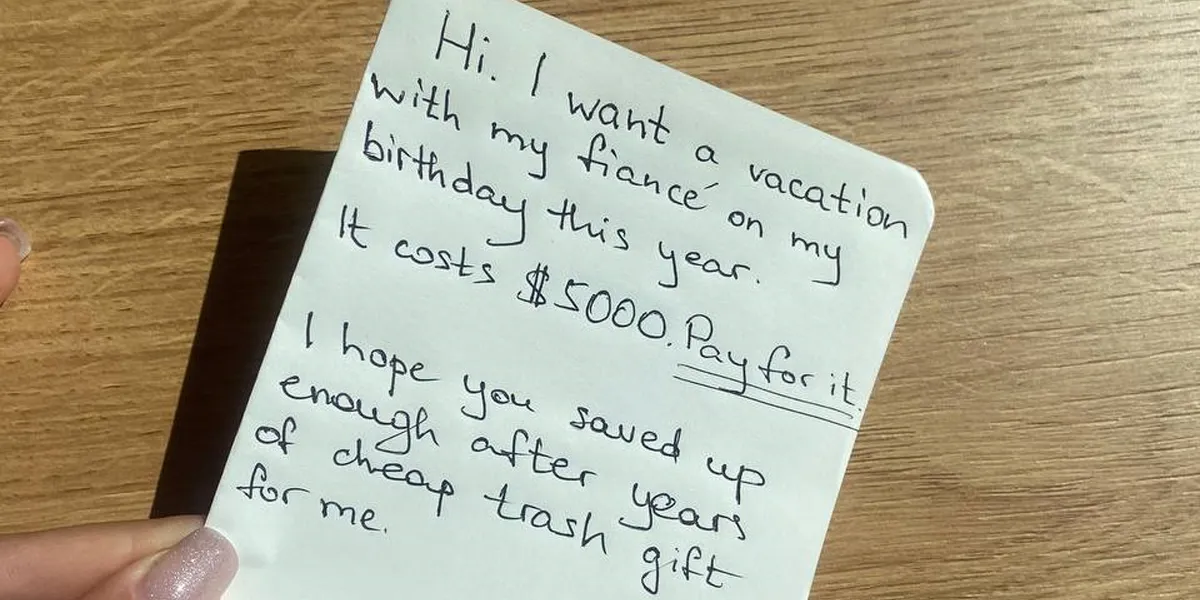 Hi. I want a vacation
with my fiancé on my
birthday this year.
It costs $5000. Pay for it.
I hope you saved up
enough after years
of cheap trash gift
for me.